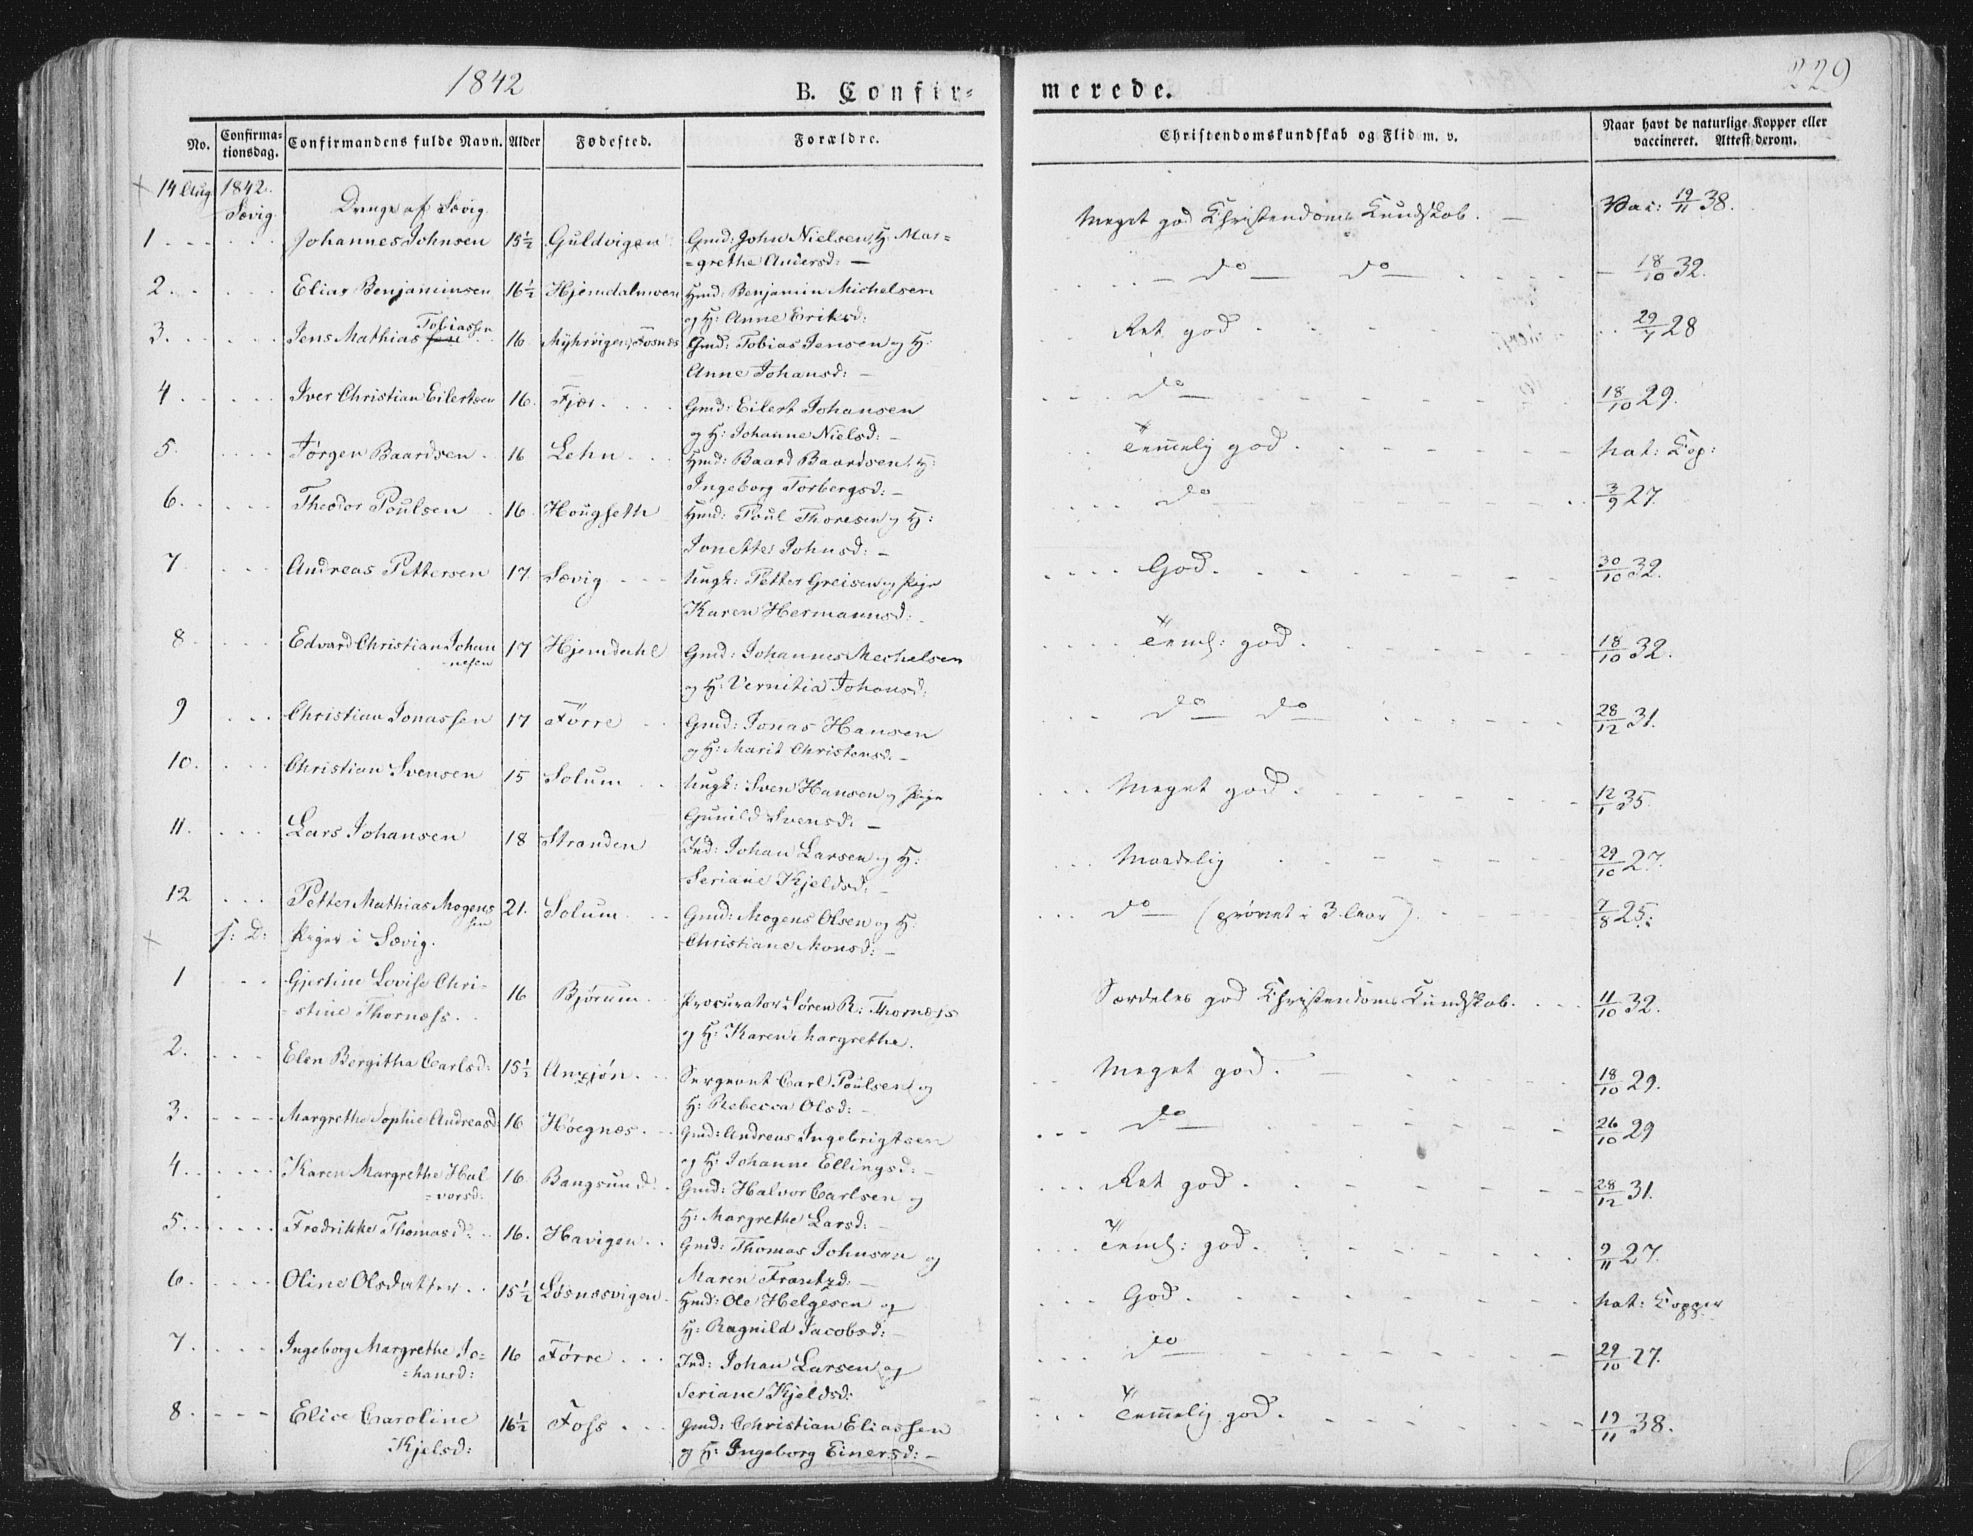 1842
B. Confir-
merede.
229
No.
Confirma-
tionsdag.
Confirmandens fulde Navn.
Alder
Fødested.
Forældre.
Christendomskundskab og Flid m. v.
Naar havt de naturlige Kopper eller
vaccineret. Attest derom.
14 Aug 1842. Drenge af Sævig.
Sævig
1 Johannes Johnsen 15½ Guldvigen Gmd: John Nielsen, H. Mar=
=grethe Andersd: — Meget god Christendoms Kundskab. — Vac: 19/11 38.
2. Elias Benjaminsen 16½ Hjemdalmoen Hmd: Benjamin Michelsen
og H: Anne Eriksd: do do 18/10 32.
3. Jens Mathias Tobiassen 16 Myhrvigen, Fosnæs Gmd: Tobias Jensen og H:
Anne Johansd: — Ret god 29/7 28
4 Iver Christian Eilertsen 16. Fjær Gmd: Eilert Johansen
og H: Johanne Nielsd: — do 18/10 29.
5. Jørgen Baardsen 16 Lehn Hmd: Baard Baardsen, H:
Ingeborg Torbergsd: — Temmelig god. nat: Kop:
6. Theodor Poulsen 16. Hougseth Hmd: Poul Thoresen og H:
Jonette Johnsd: — do 3/9 27.
7 Andreas Pettersen 17. Sævig Ungk: Petter Greisen og Pige
Karen Hermannsd: God. 30/10 32.
8 Edvard Christian Johan
=nesen 17 Hjemdahl Gmd: Johannes Mechelsen
og H: Vernitia Johansd: Teml: god. 18/10 32.
9 Christian Jonassen 17 Førre Gmd: Jonas Hansen
og H: Marit Christensd: — do do 28/12 31.
10. Christian Svensen 15 Solum Ungk: Sven Hansen og Pige
Gunild Svensd: — Meget god. 12/1 35.
11. Lars Johansen 18 Stranden Ind: Johan Larsen og H:
Seriane Kjeldsd: — Maadelig 29/10 27.
12 Petter Mathias Mogens
sen 21. Solum Gmd: Mogens Olsen og H:
Christiane Monsd: — do (prøvet i 3 Aar). 7/8 25.
s: D: Piger i Sævig.
1 Gjertine Lovise Chri-
=stine Thornæss. 16 Bjørum Procurator Søren R: Thornæss
og H: Karen Margrethe. Særdeles god Christendoms Kundskab. 11/10 32.
2. Elen Bergitha Carlsd: 15½ Anzjøn Sergeant Carl Poulsen og
H: Rebecca Olsd: — Meget god. 18/10 29.
3. Margrethe Sophie Andreasd: 16 Høegnæs Gmd: Andreas Ingebrigtsen
og H: Johanne Ellingsd: — do 26/10 29
4. Karen Margrethe Hal
=vorsd: 16 Bangsund Gmd: Halvor Carlsen og
H: Margrethe Larsd: — Ret god 28/12 31.
5. Fredrikke Thomasd: 16. Havigen Gmd: Thomas Johnsen og
Maren Frantzd: — Teml: god. 9/11 27.
6. Oline Olsdatter 15½ Løsnæsvigen Hmd: Ole Helgesen og
H: Ragnild Jacobsd: — God. nat: Kopper
7. Ingeborg Margrethe Jo-
=hansd: 16 Førre Ind: Johan Larsen og
Seriane Kjeldsd: do 29/10 27.
8. Elice Caroline
Kjelsd: 16½ Foss Gmd: Christian Eliassen
og H: Ingeborg Einersd: — Temmelig god. 19/11 38.